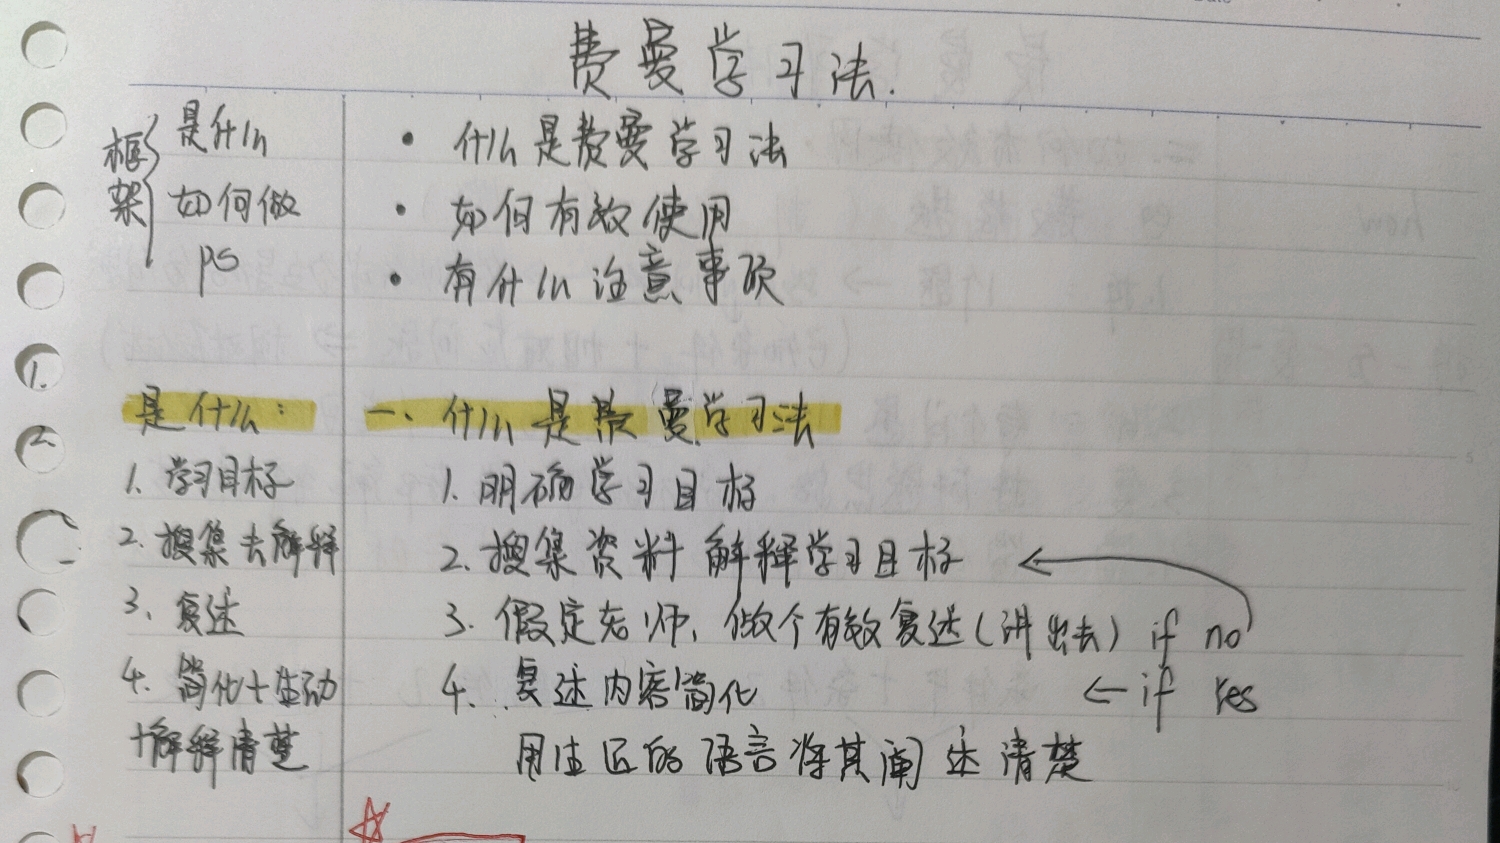 费曼学习法.
框架 是什么
如何做
ps
• 什么是费曼学习法
• 如何有效使用
• 有什么注意事项
1.
2.
是什么:
一、什么是费曼学习法
1. 学习目标
1. 明确学习目标
2. 搜集去解释
2. 搜集资料 解释学习目标 ←
3. 复述
3. 假定老师, 做个有效复述(讲出去) if no
4. 简化+生动
4. 复述内容简化 ← if Yes
+解释清楚
的语言将其阐述清楚